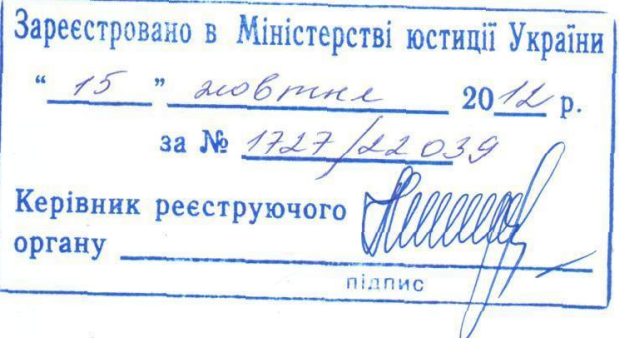 Зареєстровано в Міністерстві юстиції України
“ 15 ” жовтня 2012 р.
за № 1727/22039
Керівник реєструючого
органу
підпис